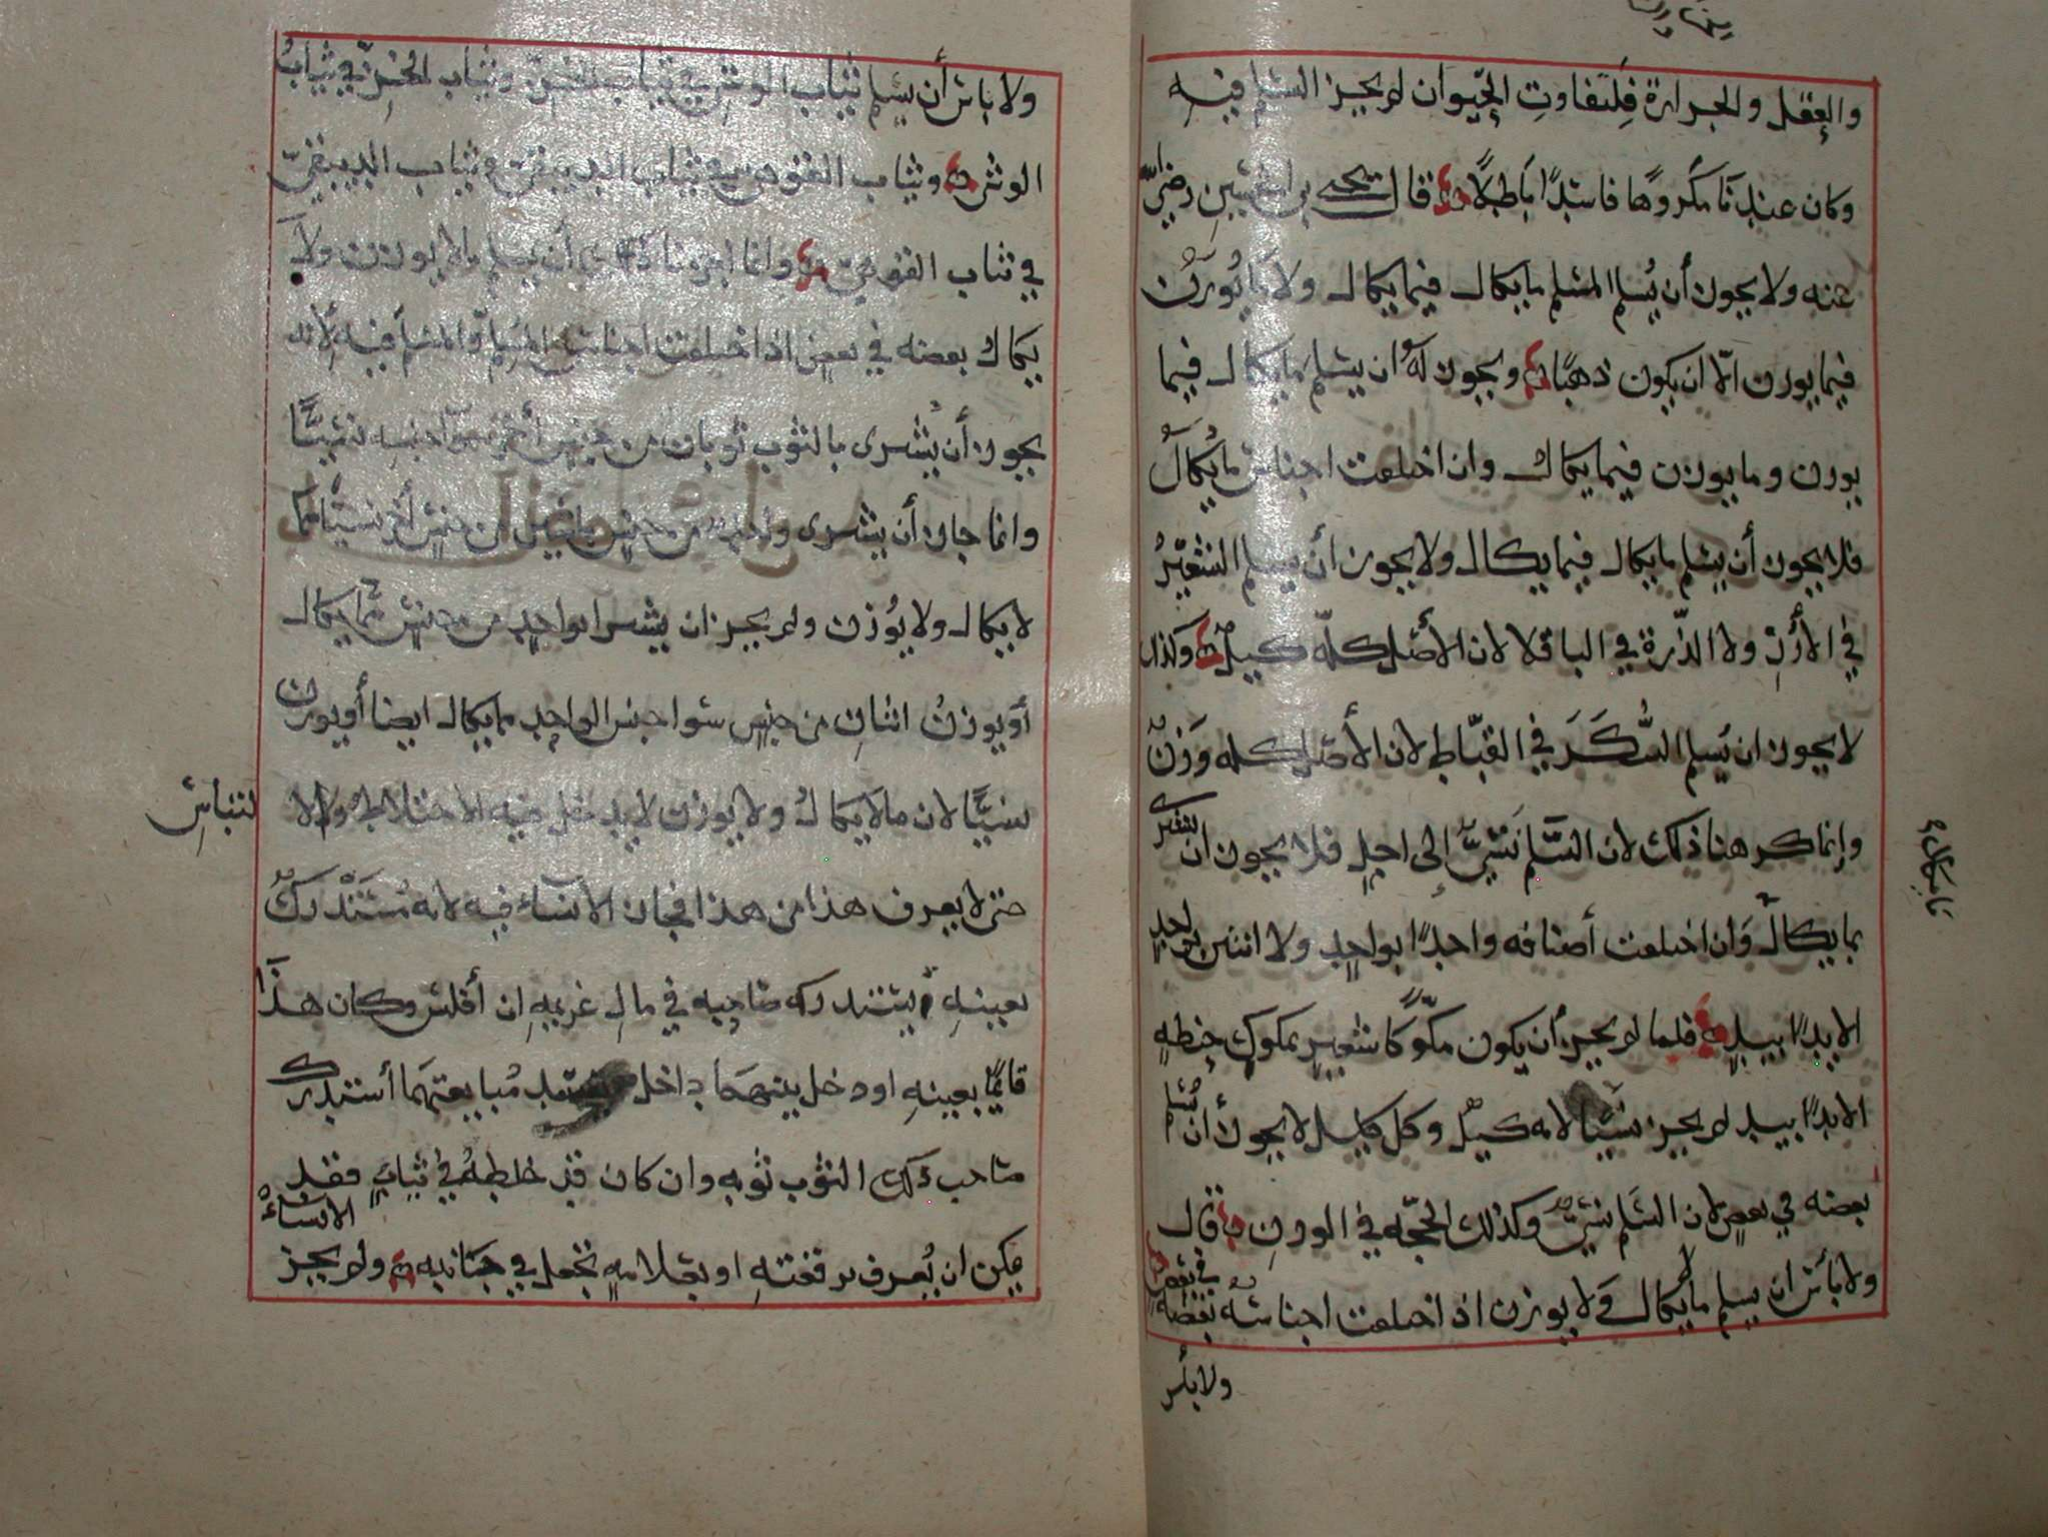 والعقل والحرارة فلتفاوت الحيوان لم يجز السلم فيه
وكان عندنا مكروها فاسدًا باطلًا قال يحيى بن الحسين رضي الله
عنه ولا يجوز أن يُسلم المسلم ما يكال فيما يكال ولا ما يُوزن
فيما يوزن الا ان يكون ذهبًا ويجوز له ان يسلم ما يكال فيما
يوزن وما يوزن فيما يكال وان اختلفت اجناس ما يُكال
فلا يجوز أن يسلم ما يكال فيما يكال ولا يجوز أن يسلم الشعيرُ
في الأرز ولا الذّرة في الباقلا لان الأصل كلّه كيل وكذلك
لا يجوز ان يُسلم السُّكَرَ في القبّاط لان الأصل كله وَزنٌ
وإنما كرهنا ذلك لان السَّلم نَسيٌّ إلى اجلٍ فلا يجوز ان يشترى
ما يكال
بما يكال وَان اختلفت أصنافه واحدًا بواحدٍ ولا اثنين بواحدٍ
الا يدًا بيدٍ فلما لم يجز أن يكون مكّوكًا شعيرٍ بمكوكِ حنطهٍ
الا يدًا بيد لم يجز نسيًا لانه كيل وكل كيل لا يجوز أن يُسلم
بعضه في بعضٍ لان السَلم نسيٌّ وكذلك الحجّه في الوزنِ قال
ولا بأس ان يسلم ما لا يكال وَلا يوزن اذا اختلفت اجناسُه بعضُه في بعض
ولا بأس
ولا باس أن يسلم ثياب الوشي في ثياب الخز وثياب الخزّ في ثياب
الوشى وثياب القوهي في ثياب الدبيقي وثياب الدبيقيّ
في ثياب القوهي وانما اجزنا ذلك أن يسلم ما لا يوزن ولا
يكال بعضه في بعض اذا اختلفت اجناس المسلم والمسلم فيه لأنه
يجوز أن يُشترى بالثوب ثوبان من جنس أخر سوا جنسه نسيًّا
وانما جاز أن يشترى واحد من جنس باثنين من جنس أخر نسيًا مما
لا يكال ولا يُوزن ولم يجز ان يشترا بواحدٍ من جنسٍ مما يكال
أو يوزنُ اثنانِ من جنسٍ سوا جنس الواحدِ مما يكال ايضا أو يوزن
نسيًّا لان ما لا يكالُ ولا يوزن لا يدخل فيه الاختلاط ولا الالتباس
حتى لا يعرف هذا من هذا فجاز الانسآء فيه لانه مُسْتَدْركٌ
بعينهِ يستدركه صاحبه في مالِ غريمهِ ان أفلس وكان هذا
قايمًا بعينهِ او دخل بينهما داخل مُبايعتهما أستدرك
صاحب ذلك الثوب ثوبه وان كان قد خلطهُ في ثيابٍ فقد
يمكن ان يُعرف برقعتهِ او بعلامهٍ تجعل في جنابيه ولم يجز الانساء